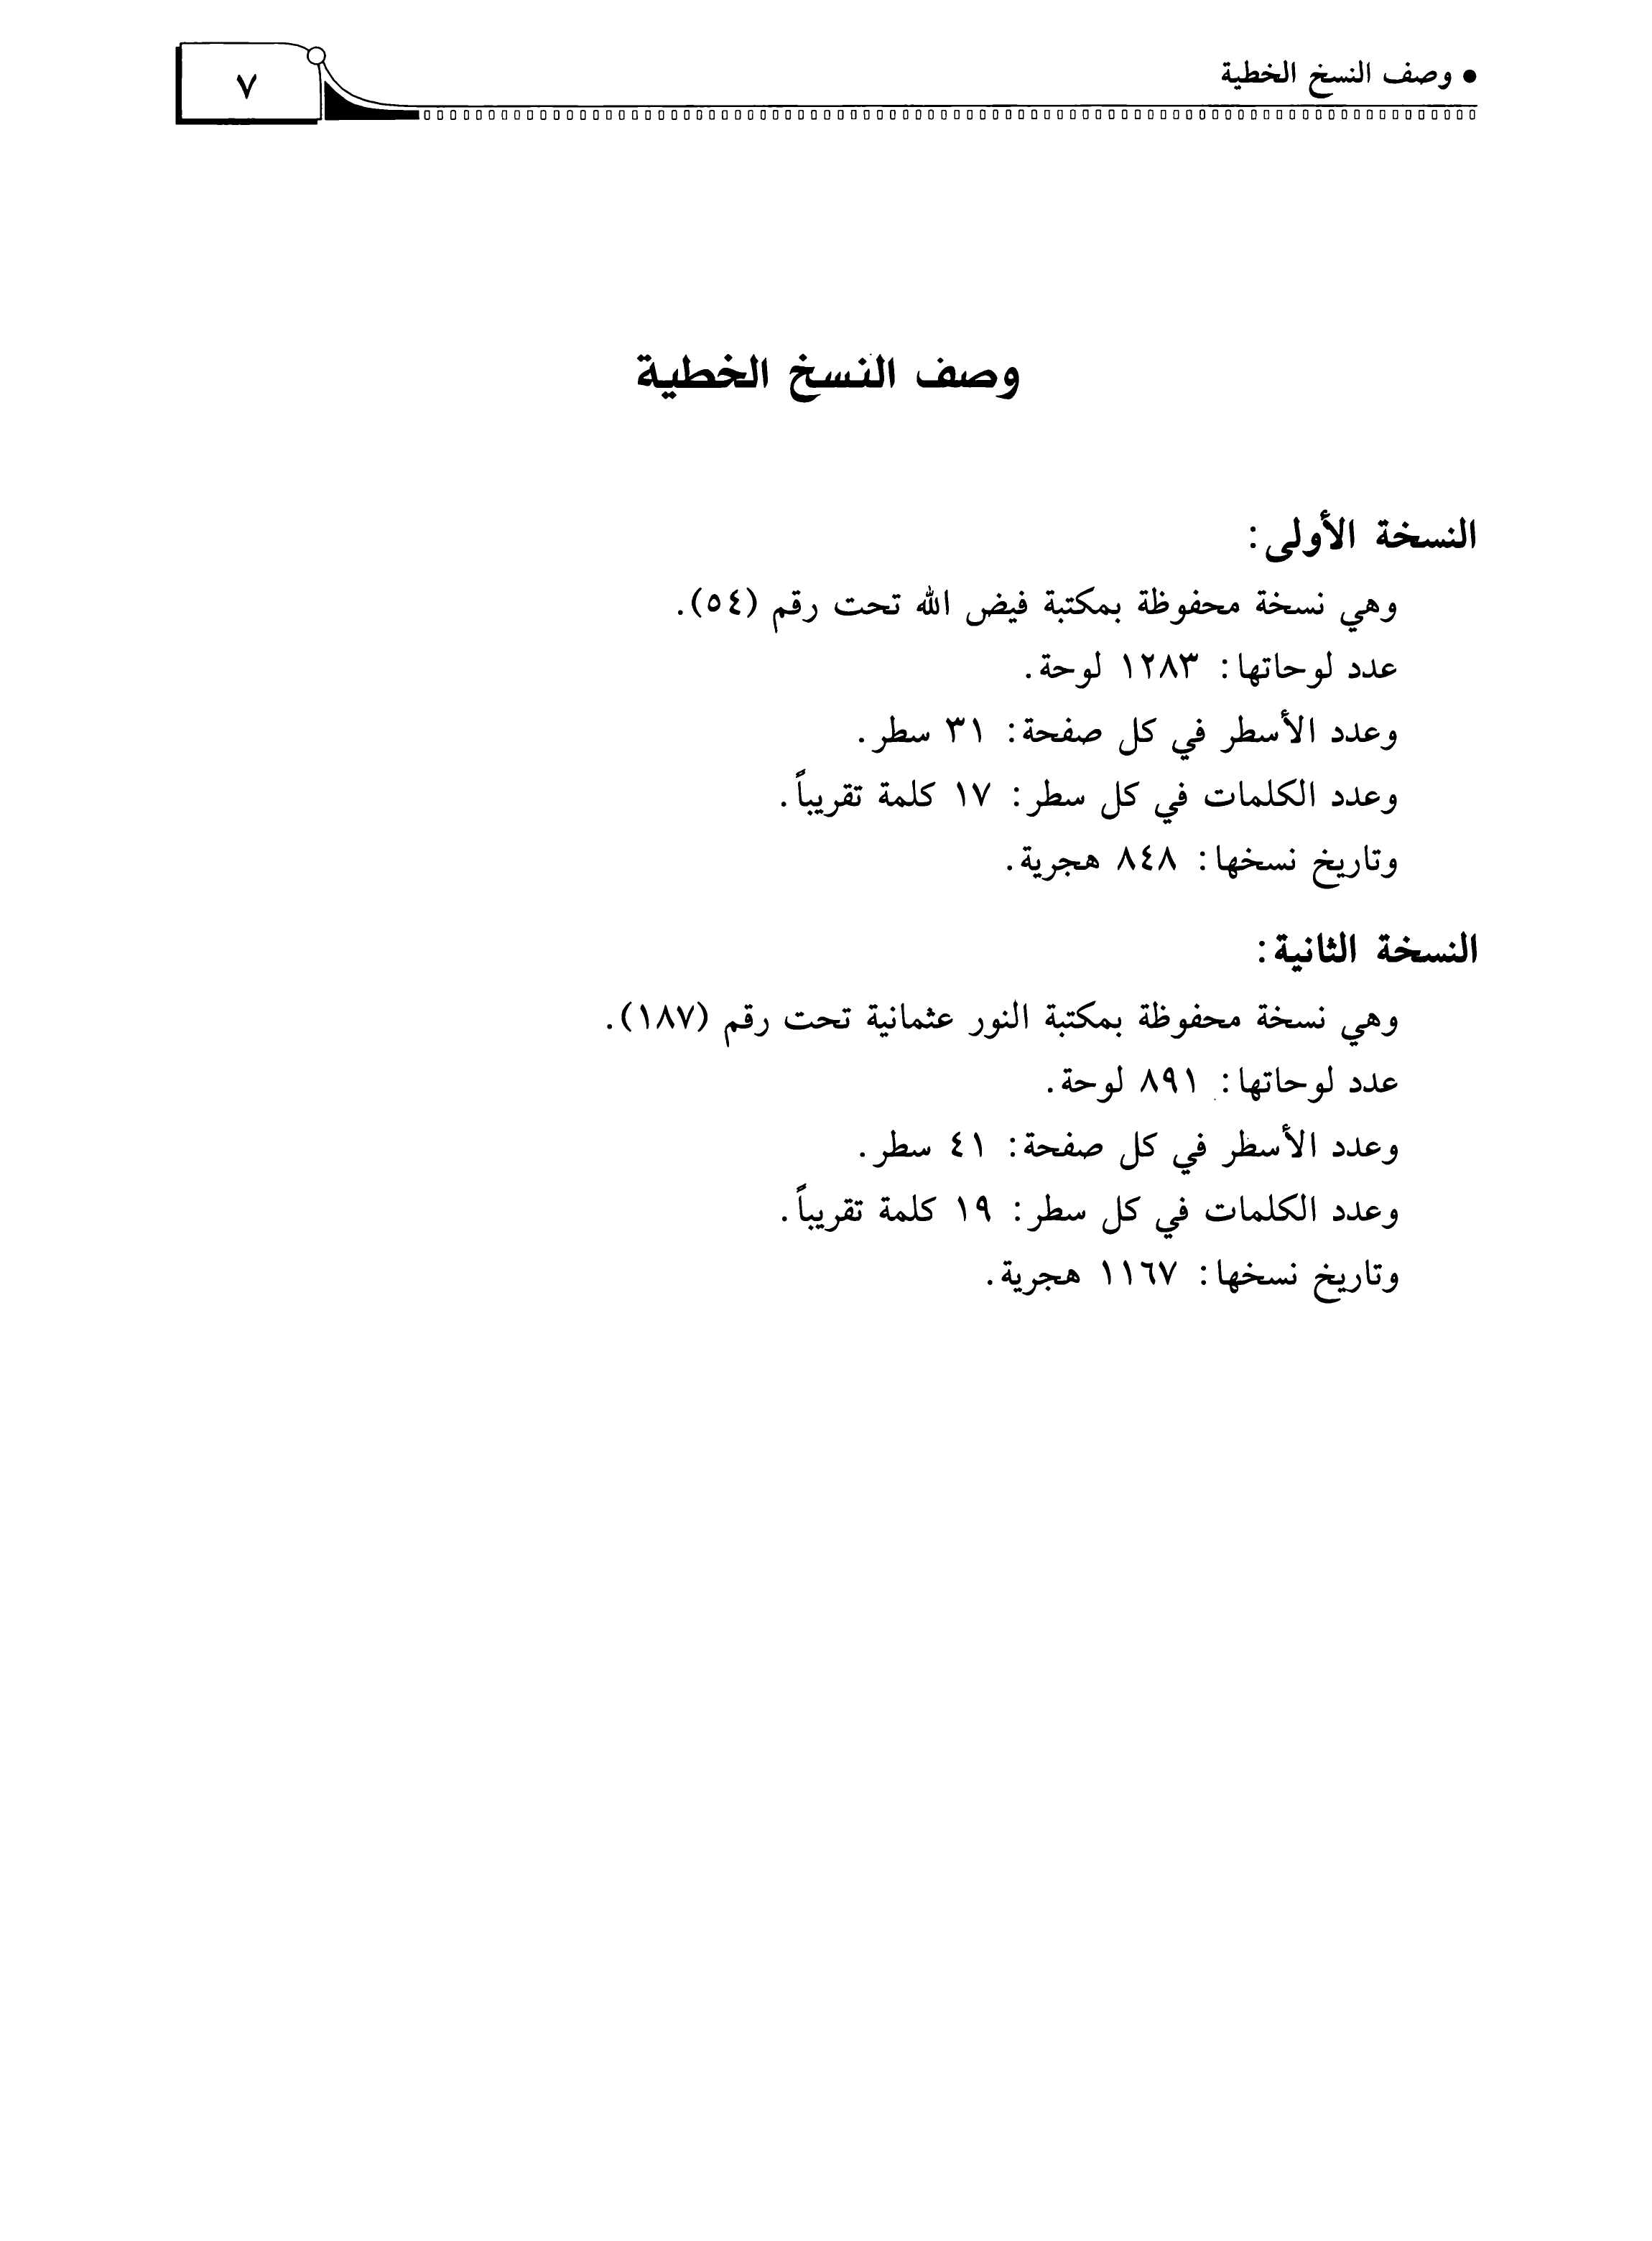 • وصف النسخ الخطية
٧
وصف النسخ الخطية
النسخة الأولى:
وهي نسخة محفوظة بمكتبة فيض الله تحت رقم (٥٤).
عدد لوحاتها: ١٢٨٣ لوحة.
وعدد الأسطر في كل صفحة: ٣١ سطر.
وعدد الكلمات في كل سطر: ١٧ كلمة تقريباً.
وتاريخ نسخها: ٨٤٨ هجرية.
النسخة الثانية:
وهي نسخة محفوظة بمكتبة النور عثمانية تحت رقم (١٨٧).
عدد لوحاتها: ٨٩١ لوحة.
وعدد الأسطر في كل صفحة: ٤١ سطر.
وعدد الكلمات في كل سطر: ١٩ كلمة تقريباً.
وتاريخ نسخها: ١١٦٧ هجرية.